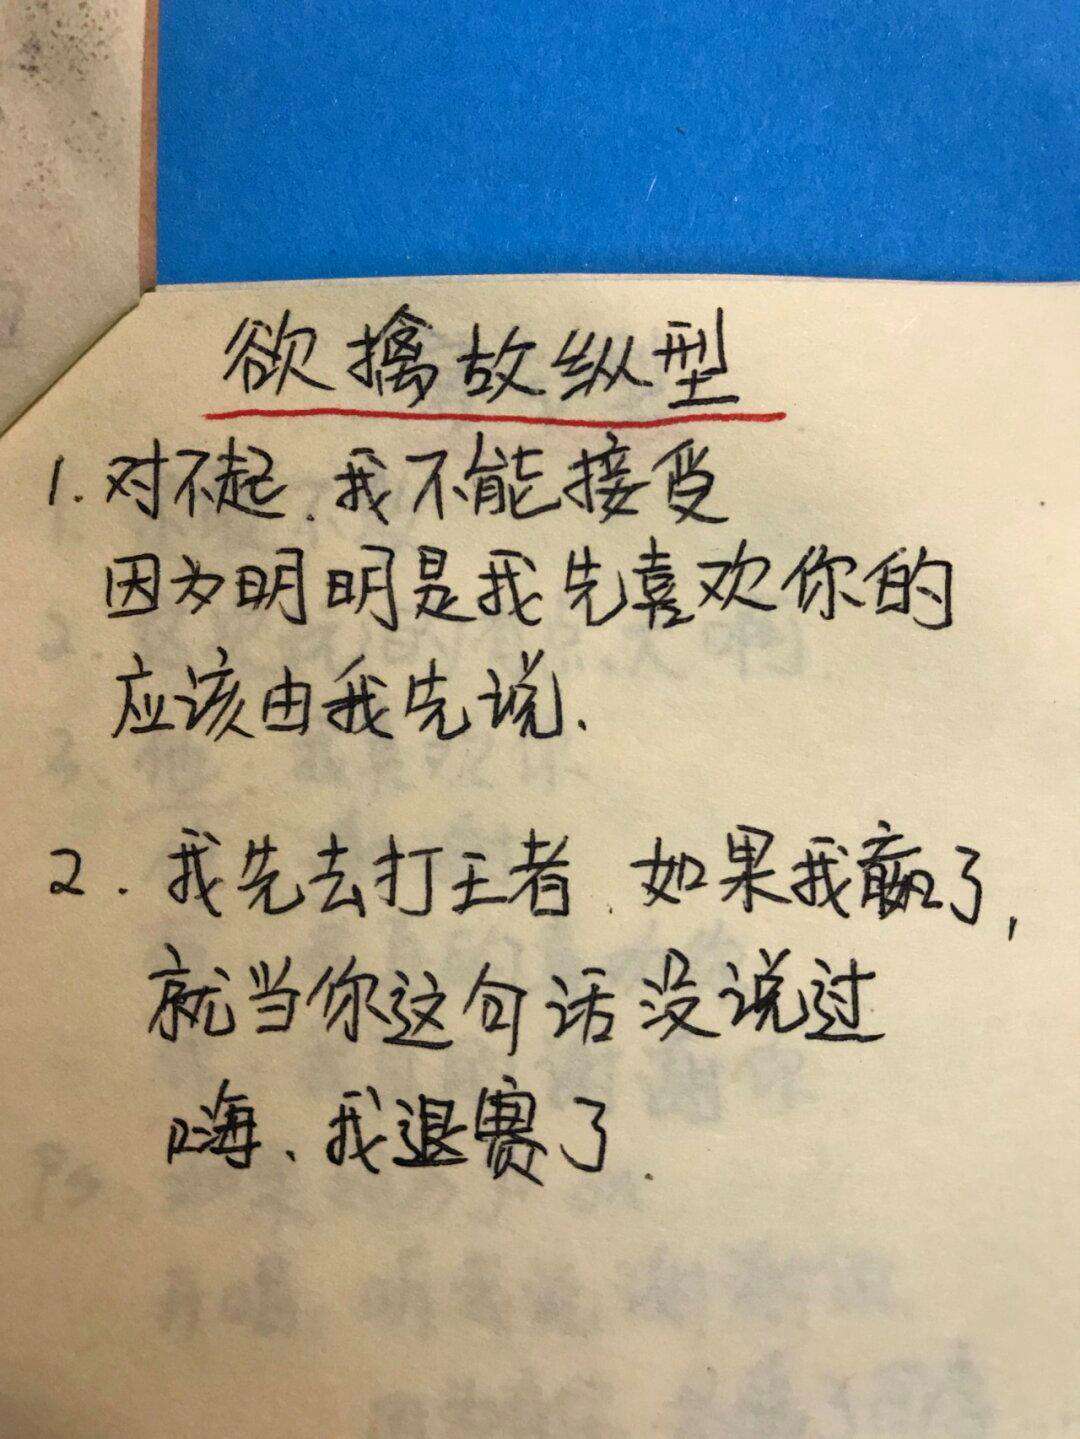 欲擒故纵型
1.对不起、我不能接受
因为明明是我先喜欢你的
应该由我先说、
2.我先去打王者.如果我赢了,
就当你这句话没说过
嗨、我退赛了.